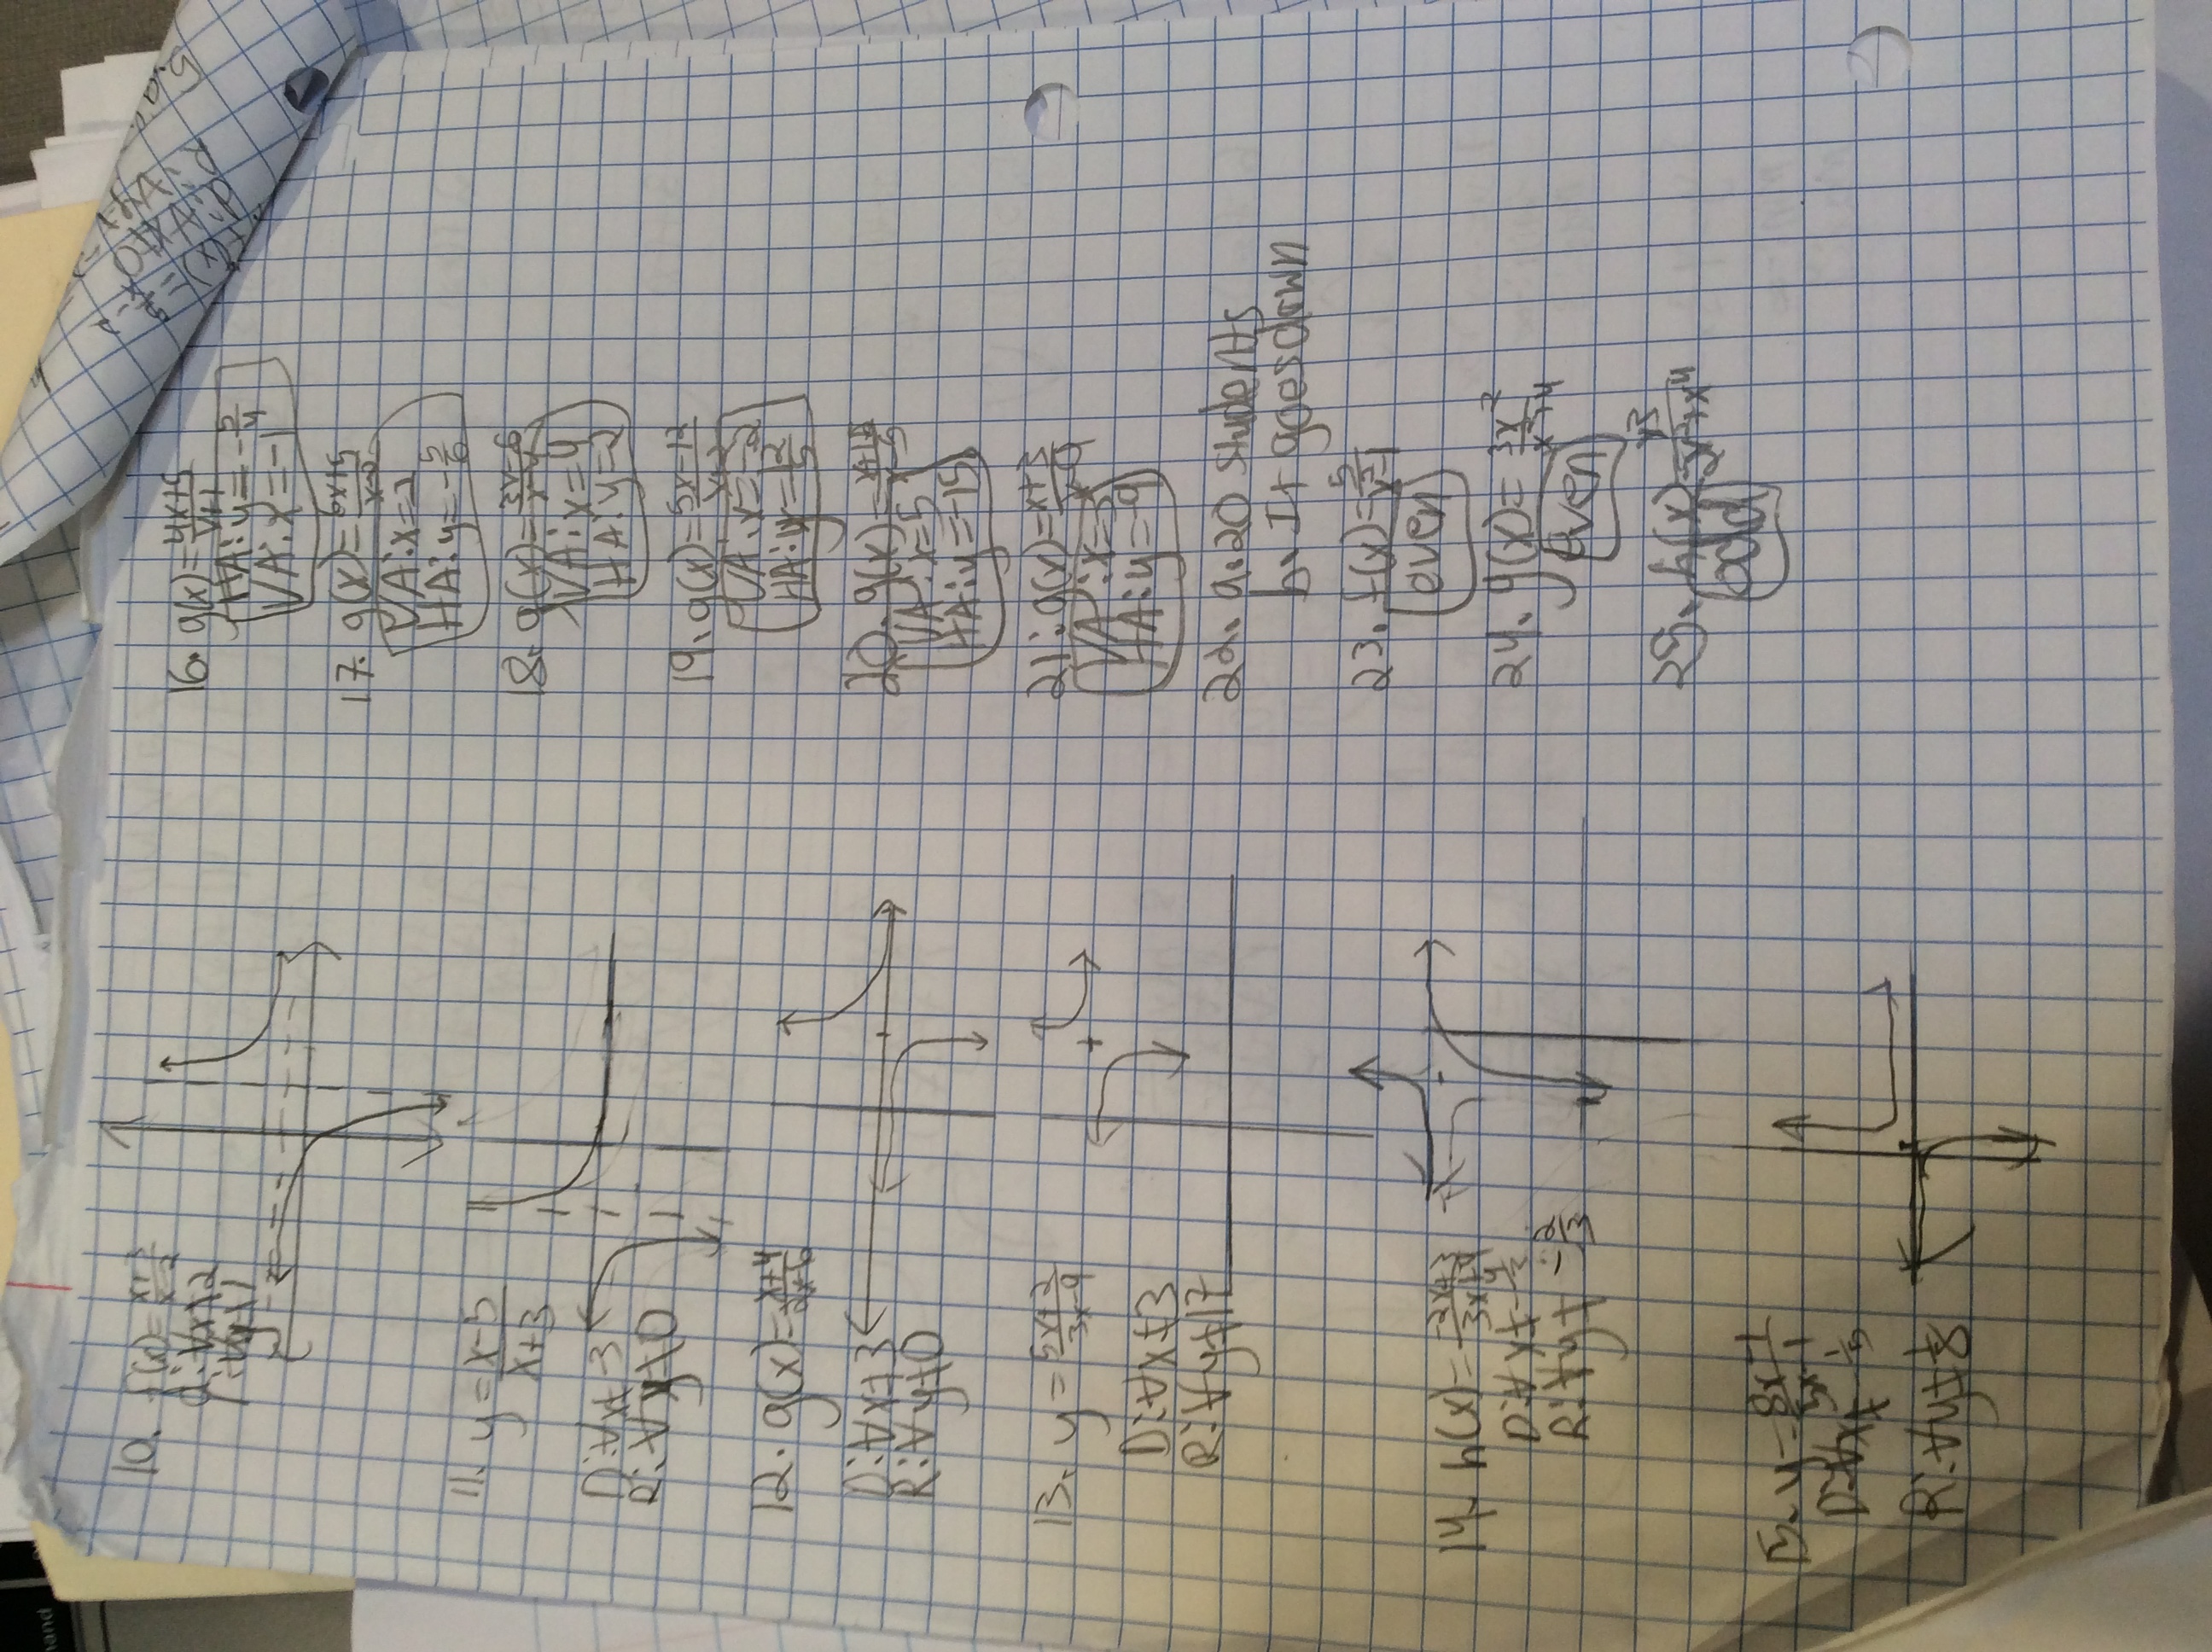 10. f(x)=x+3/x-2
d:∀x≠2
r:∀y≠1
11. y=x-5/x+3
D:∀x≠-3
R:∀y≠0
12. g(x)=x+4/2x-6
D:∀x≠3
R:∀y≠0
13. y=5x+2/3x-9
D:∀x≠3
R:∀y≠17
14. h(x)=-2x+3/3x+4
D:∀x≠-4/3
R:∀y≠-2/3
15. y=8x-1/5x-1
D:∀x≠1/5
R:∀y≠1/8
16. g(x)=4x+5/x+1
HA:y=-5/4
VA:x=-1
17. g(x)=6x+5/x-2
VA:x=2
HA:y=-5/6
18. g(x)=3x-6/x-4
VA:x=4
HA:y=2
19. g(x)=5x-12/x+2
VA:x=-2
HA:y=12/5
20. g(x)=x+15/x-5
VA:x=5
HA:y=-15
21. g(x)=x+3/x-9
VA:x=3
HA:y=-9
22. a. 20 students
b. It goes down
23. f(x)=5/x²-1
even
24. g(x)=3x²/x²+4
even
25. h(x)=x³/2x²+x⁴
odd